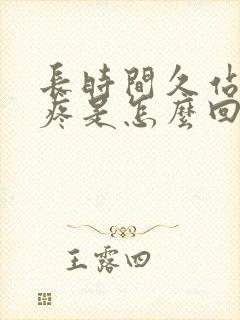 長時間久佔
疼是怎麼回
王露四